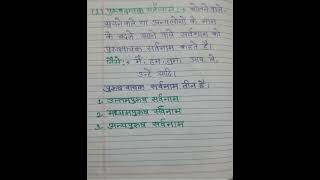 (1) पुरुषवाचक सर्वनाम :- बोलने वाले,
सुनने वाले या अन्य लोगों के नाम
के बदले आने वाले सर्वनाम को
पुरुषवाचक सर्वनाम कहते हैं।
जैसे :- मैं, हम, तुम, आप, वे,
उन्हें आदि।
पुरुष वाचक सर्वनाम तीन हैं।
1. उत्तमपुरुष सर्वनाम
2. मध्यमपुरुष सर्वनाम
3. अन्यपुरुष सर्वनाम